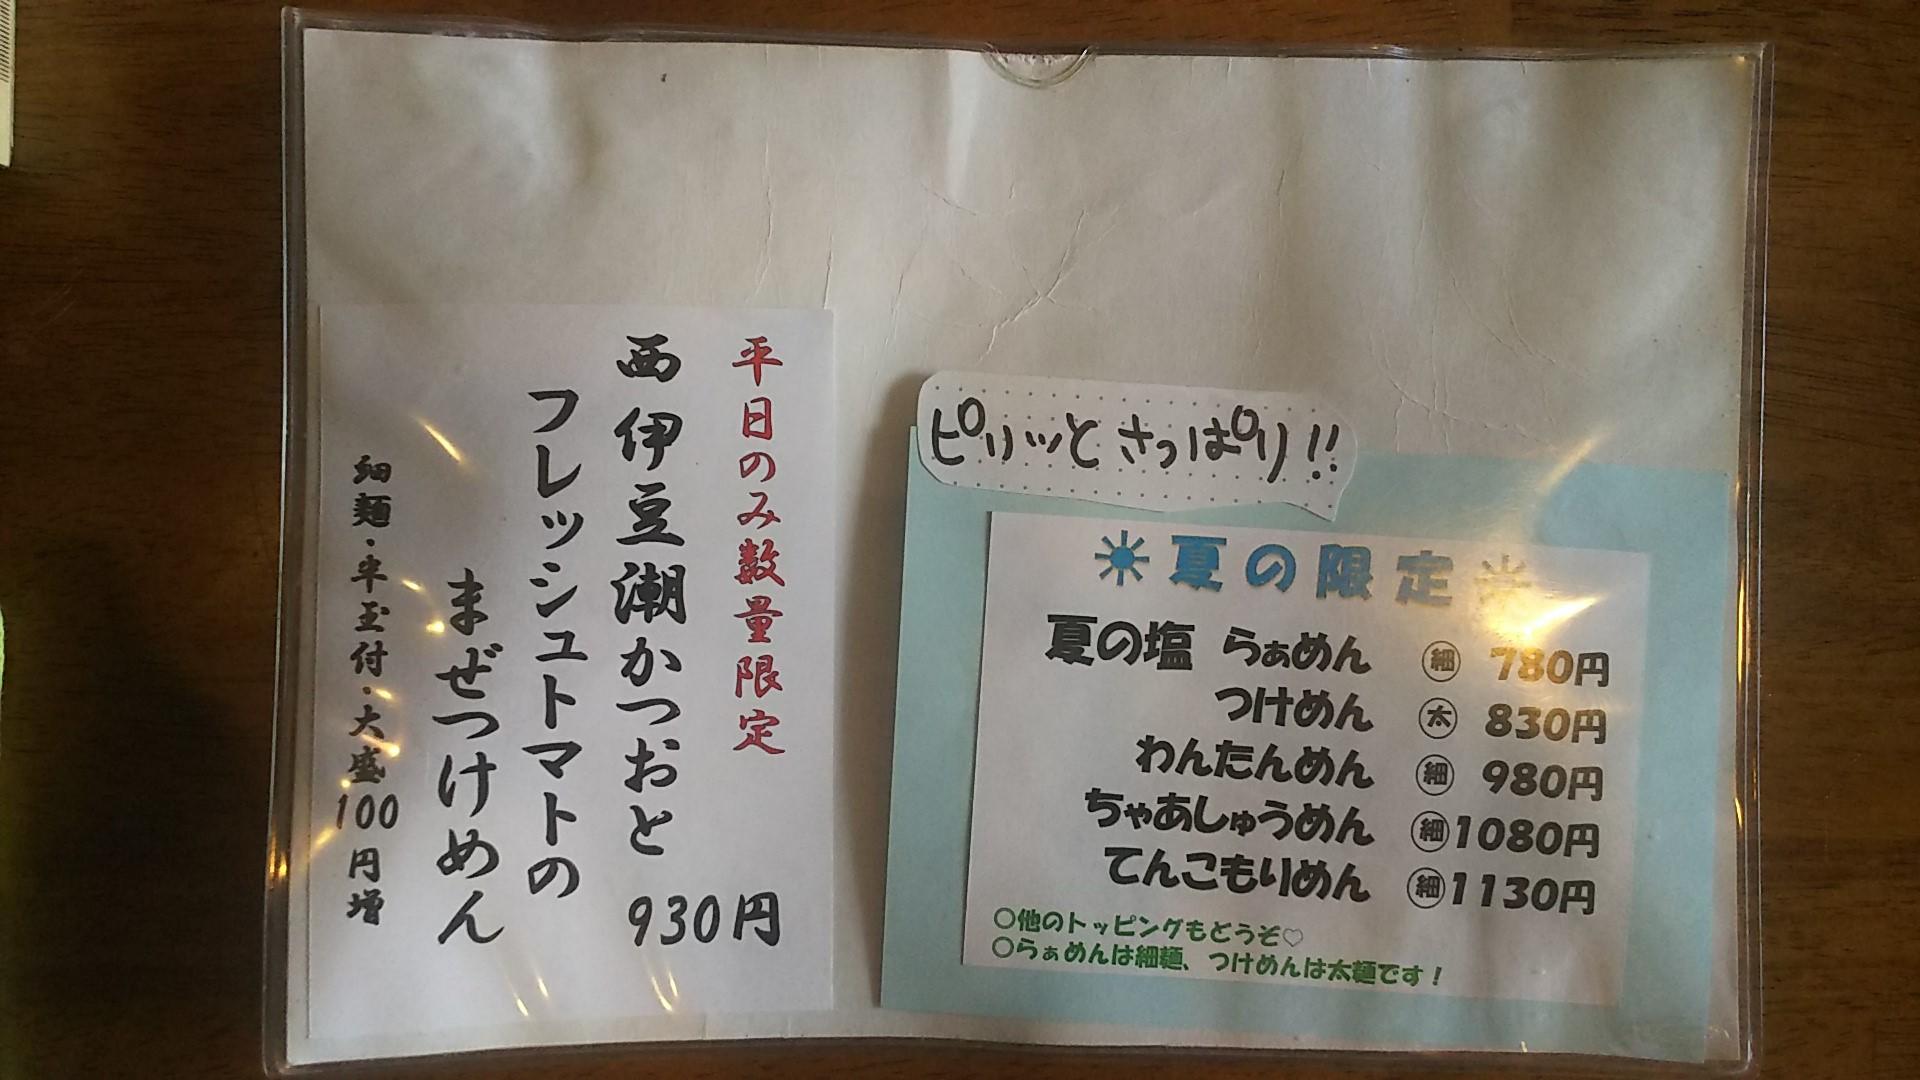 平日のみ数量限定
西伊豆潮かつおと
フレッシュトマトの
まぜつけめん
930円
細麺・半玉付・大盛100円増
ピリッとさっぱり!!
☀夏の限定☀
夏の塩 らぁめん ㊙細 780円
つけめん 太 830円
わんたんめん 細 980円
ちゃあしゅうめん 細 1080円
てんこもりめん 細 1130円
○他のトッピングもどうぞ♡
○らぁめんは細麺、つけめんは太麺です！